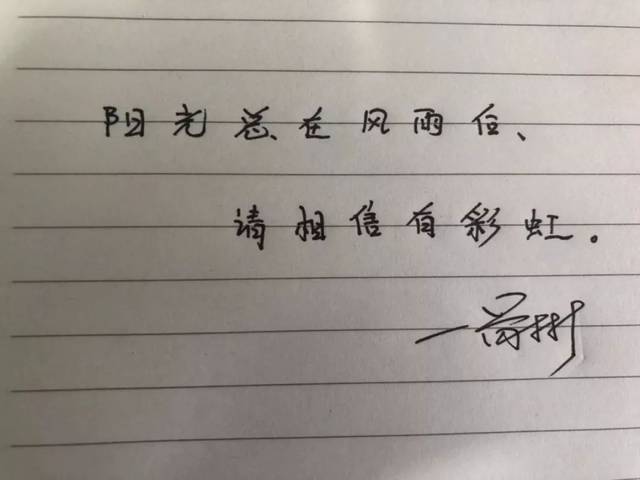 阳光总在风雨后、
请相信有彩虹。